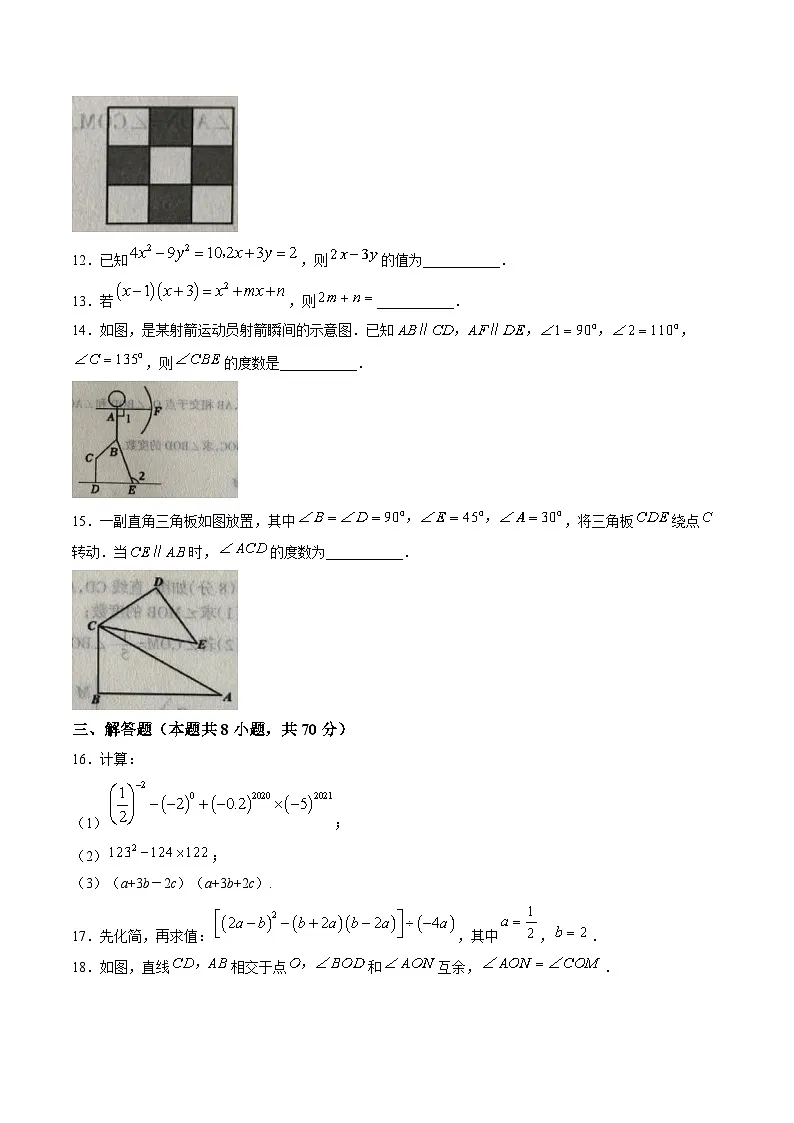 ∠AON=∠COM.
12．已知4x²－9y²＝10，2x＋3y＝2，则2x－3y的值为___________．
13．若(x－1)(x＋3)＝x²＋mx＋n，则2m＋n＝___________．
14．如图，是某射箭运动员射箭瞬间的示意图．已知AB∥CD，AF∥DE，∠1＝90°，∠2＝110°，
∠C＝135°，则∠CBE的度数是___________．
A 1 F
B
C
2
D E
15．一副直角三角板如图放置，其中∠B＝∠D＝90°，∠E＝45°，∠A＝30°，将三角板CDE绕点C
转动．当CE∥AB时，∠ACD的度数为___________．
D
C
E
B A
三、解答题（本题共8小题，共70分）
16．计算：
（1）(1/2)⁻²－(－2)⁰＋(－0.2)²⁰²⁰×(－5)²⁰²¹；
（2）123²－124×122；
（3）（a+3b－2c）（a+3b+2c）．
17．先化简，再求值：[(2a－b)²－(b＋2a)(b－2a)]÷(－4a)，其中a＝1/2，b＝2．
18．如图，直线CD，AB相交于点O，∠BOD和∠AON互余，∠AON＝∠COM．